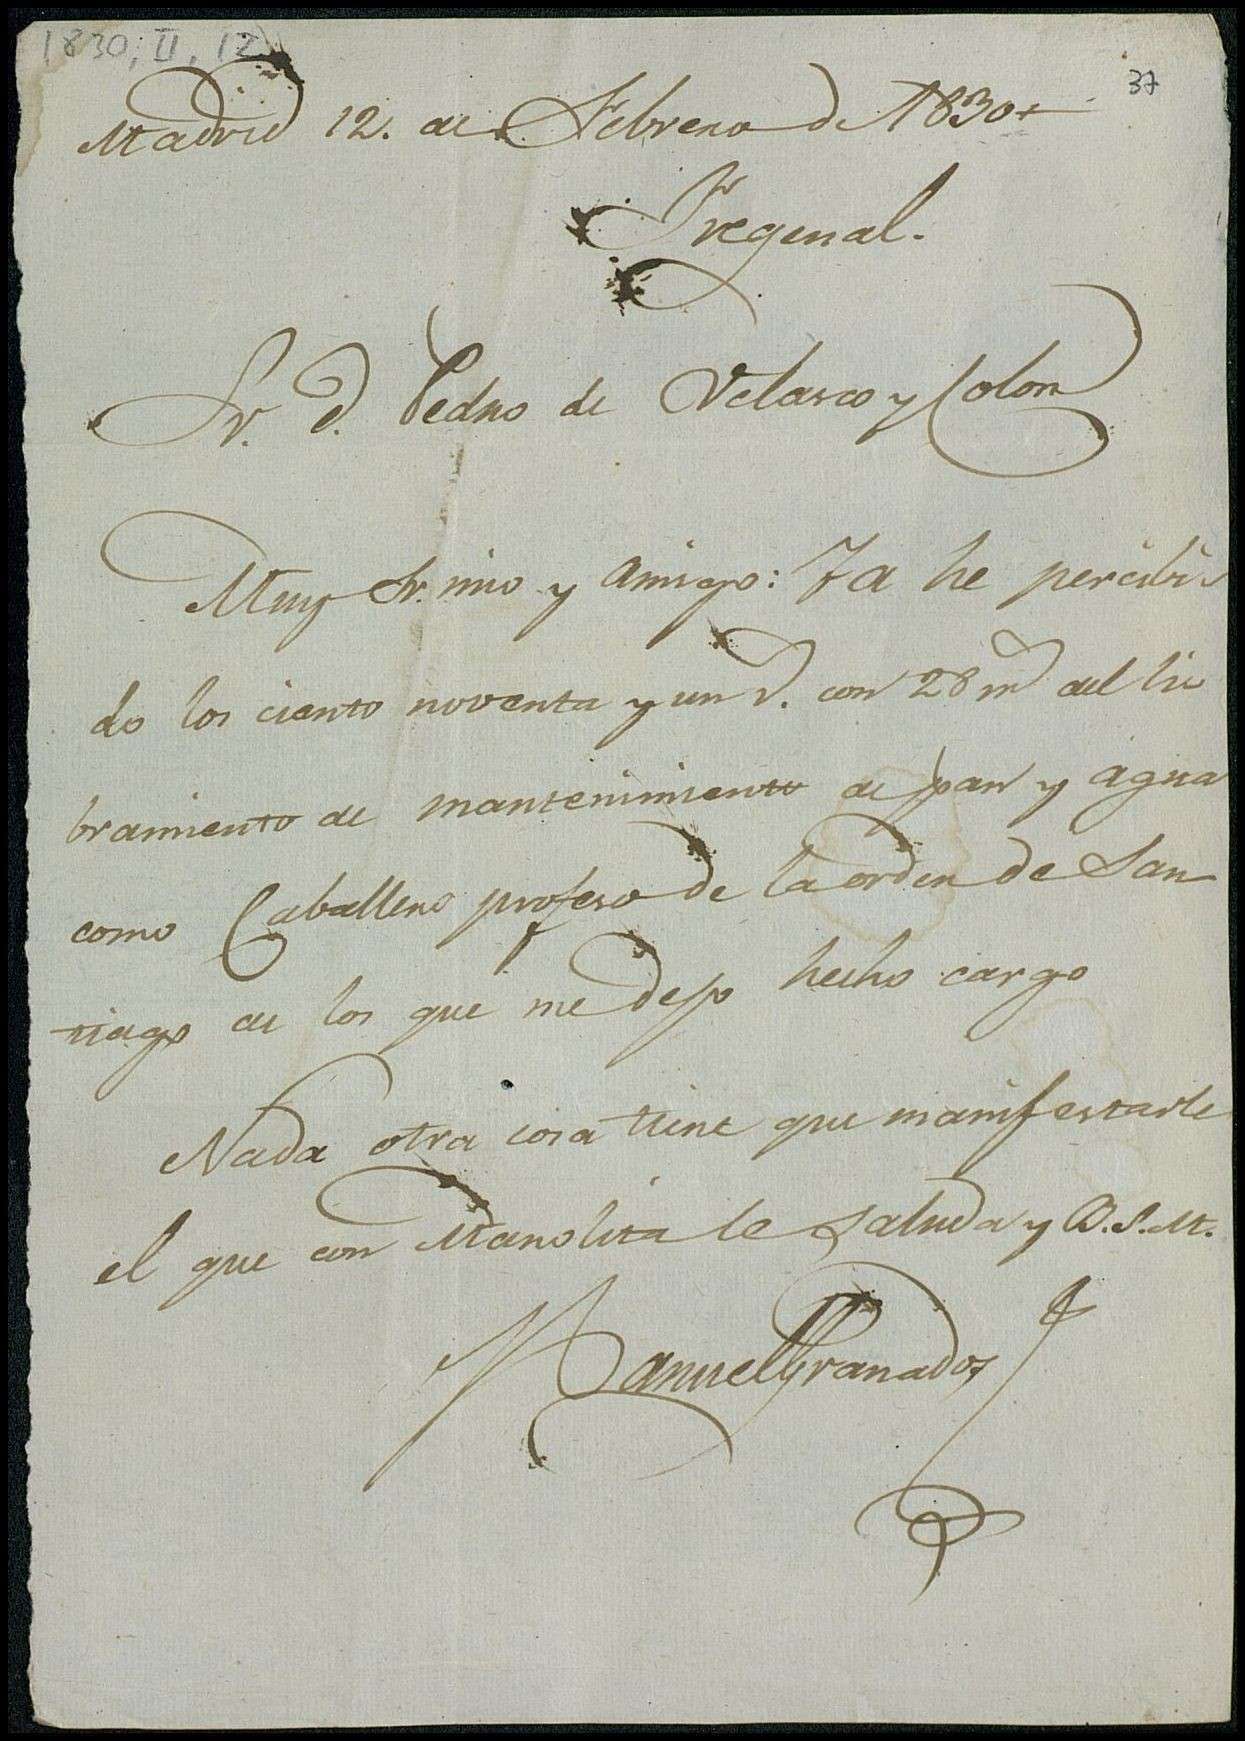 1830, II, 12
37
Madrid 12. de Febrero de 1830.
Fregenal.
Sr. d. Pedro de Velasco y Colon
Muy Sr. mio y amigo: Ya he percibi-
do los ciento noventa y un r. con 28 md del li
bramiento de mantenimiento de pan y agua
como Caballero profeso de la orden de San
tiago de los que me dejo hecho cargo
Nada otra cosa tiene que manifestarle
el que con Manolita le saluda y B. S. M.
Manuel Granados